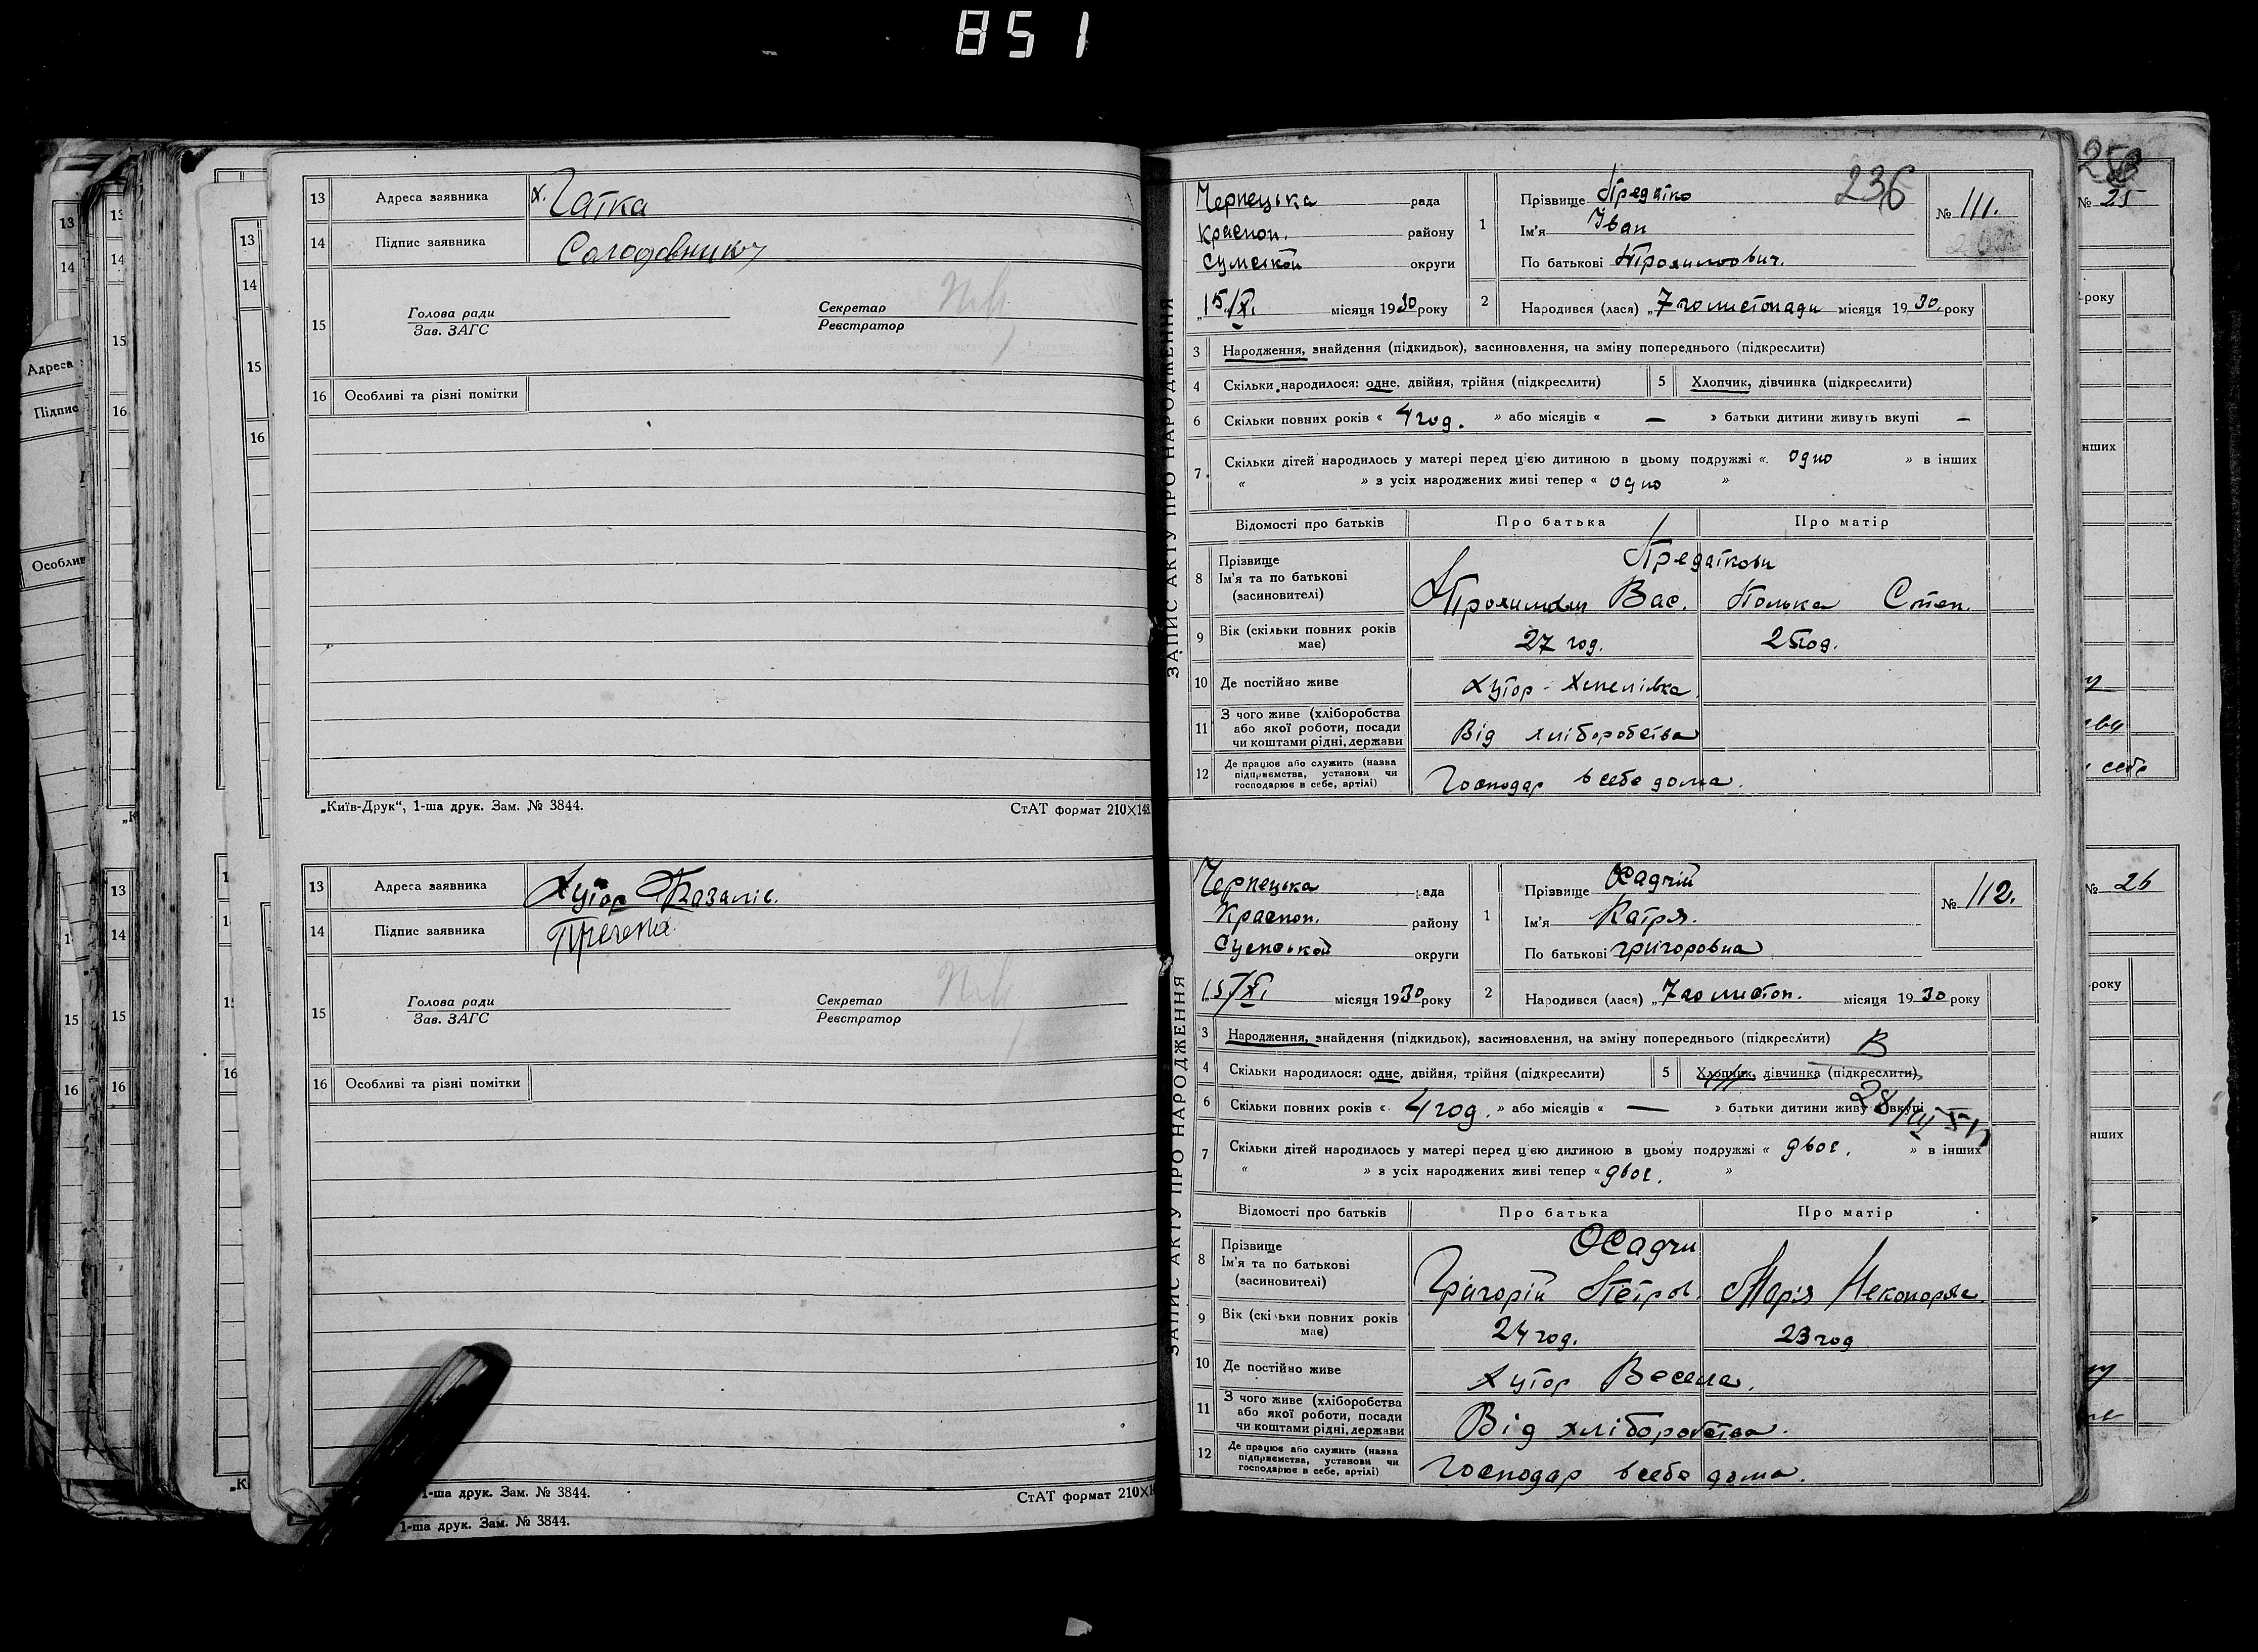 851
13 Адреса заявника х. Гатка
14 Підпис заявника Солодовнику
15 Голова ради
Зав. ЗАГС
Секретар
Реєстратор
16 Особливі та різні помітки
„Київ-Друк“, 1-ша друк. Зам. № 3844.
СтАТ формат 210×148
13 Адреса заявника Хутор
14 Підпис заявника
15 Голова ради
Зав. ЗАГС
Секретар
Реєстратор
16 Особливі та різні помітки
1-ша друк. Зам. № 3844.
СтАТ формат 210×1
1-ша друк. Зам. № 3844.
ЗАПИС АКТУ ПРО НАРОДЖЕННЯ
236
Чернецька рада
Краспоп. району
Сумської округи
„15/XI. місяця 1930 року
1 Прізвище Предатко
Ім'я Іван
По батькові Трохимович.
№ 111.
2 Народився (лася) „7го листопади місяця 1930. року
3 Народження, знайдення (підкидьок), засиновлення, на зміну попереднього (підкреслити)
4 Скільки народилося: одне, двійня, трійня (підкреслити)
5 Хлопчик, дівчинка (підкреслити)
6 Скільки повних років « 4 год. » або місяців « — » батьки дитини живуть вкупі —
7 Скільки дітей народилось у матері перед цією дитиною в цьому подружжі « одно » в інших
« » з усіх народжених живі тепер « одно »
Відомості про батьків
Про батька
Про матір
8 Прізвище
Ім'я та по батькові
(засиновителі)
Предаткови
Трохим Вас. Полька Степ.
9 Вік (скільки повних років має) 27 год. 25 год.
10 Де постійно живе Хутор - Хмелівка
11 З чого живе (хліборобства
або якої роботи, посади
чи коштами рідні, держави
Від хліборобства
12 Де працює або служить (назва
підприємства, установи чи
господарює в себе, артілі)
Господар в себе дома.
ЗАПИС АКТУ ПРО НАРОДЖЕННЯ
Чернецька рада
Краспоп. району
Сумської округи
„15/XI. місяця 1930 року
1 Прізвище Осадчій
Ім'я Катря.
По батькові Григоровна
№ 112.
2 Народився (лася) „7го листоп. місяця 1930 року
3 Народження, знайдення (підкидьок), засиновлення, на зміну попереднього (підкреслити)
В
4 Скільки народилося: одне, двійня, трійня (підкреслити)
5 Хлопчик, дівчинка (підкреслити)
6 Скільки повних років « 4 год. » або місяців « — » батьки дитини живу вкупі
7 Скільки дітей народилось у матері перед цією дитиною в цьому подружжі « двоє. » в інших
« » з усіх народжених живі тепер « двоє. »
Відомості про батьків
Про батька
Про матір
8 Прізвище
Ім'я та по батькові
(засиновителі)
Осадчи
Григорій Петров. Марія
9 Вік (скільки повних років має) 24 год. 23 год
10 Де постійно живе Хутор Веселе.
11 З чого живе (хліборобства
або якої роботи, посади
чи коштами рідні, держави
Від хліборобства.
12 Де працює або служить (назва
підприємства, установи чи
господарює в себе, артілі)
Господар в себе дома.
№ 25
року
нших
себе
№ 26
року
нших